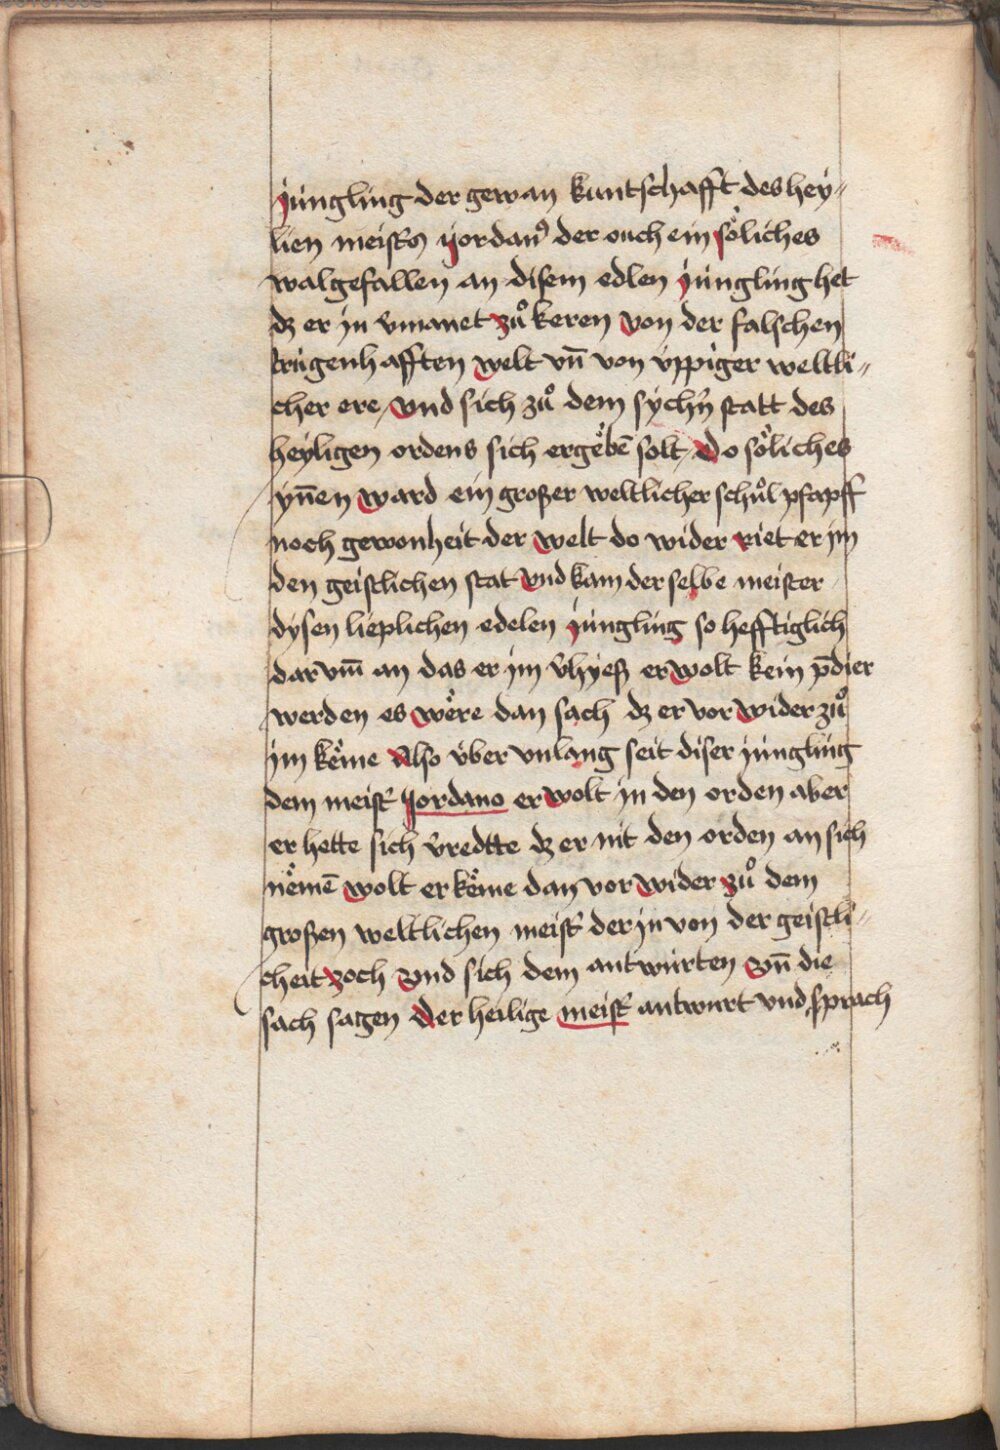 jüngling der gewan kuntschafft des hey⸗
lien meisters yordanꝰ der ouch ein söliches
walgefallen an disem edlen jüngling het
dz er jn v̄manet zuͦ keren von der falschen
trügenhafften welt vn̄ von üppiger weltli⸗
cher ere / vnd sich zuͦ dem sychn̄ statt des
heyligen ordens sich ergebē solt / do söliches
yn̄en ward ein großer weltlicher schuͦl pfapff
noch gewonheit der welt do wider riet er jm
den geistlichen stat vnd kam der selbe meister
dysen lieplichen edelen jüngling so hefftiglich
darvm̄ an das er jm v̄hyeß er wolt kein p̄dier
werden es were dan sach dz er vor wider zuͦ
jm keme Also über vnlang seit diser jüngling
dem meist̄ jordano er wolt jn den orden aber
er hette sich v̄redtte dz er nit den orden an sich
nemē wolt er keme dan vor wider zuͦ dem
großen weltlichen meist̄ der jn von der geistli⸗
cheit zoch vnd sich dem antwürten vn̄ die
sach sagen der heilige meist̄ antwurt vnd sprach